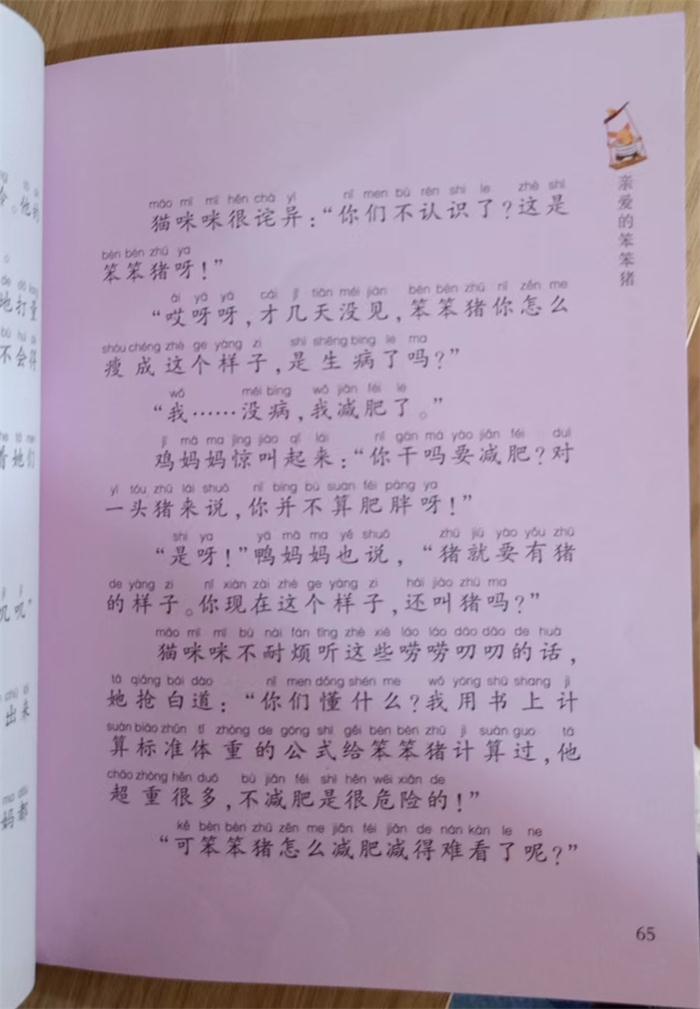 冷。他的
地打量
不会得
着她们
叽叽”
出来
妈都
亲爱的笨笨猪
māo mī mī hěn chà yì nǐ men bù rèn shi le zhè shì
猫咪咪很诧异：“你们不认识了？这是
bèn bèn zhū ya
笨笨猪呀！”
āi yā yā cái jǐ tiān méi jiàn bèn bèn zhū nǐ zěn me
“哎呀呀，才几天没见，笨笨猪你怎么
shòu chéng zhè ge yàng zi shì shēng bìng le ma
瘦成这个样子，是生病了吗？”
wǒ méi bìng wǒ jiǎn féi le
“我……没病，我减肥了。”
jī mā ma jīng jiào qǐ lái nǐ gàn má yào jiǎn féi duì
鸡妈妈惊叫起来：“你干吗要减肥？对
yì tóu zhū lái shuō nǐ bìng bú suàn féi pàng ya
一头猪来说，你并不算肥胖呀！”
shì ya yā mā ma yě shuō zhū jiù yào yǒu zhū
“是呀！”鸭妈妈也说，“猪就要有猪
de yàng zi nǐ xiàn zài zhè ge yàng zi hái jiào zhū ma
的样子。你现在这个样子，还叫猪吗？”
māo mī mī bú nài fán tīng zhè xiē láo láo dāo dāo de huà
猫咪咪不耐烦听这些唠唠叨叨的话，
tā qiǎng bái dào nǐ men dǒng shén me wǒ yòng shū shang jì
她抢白道：“你们懂什么？我用书上计
suàn biāo zhǔn tǐ zhòng de gōng shì gěi bèn bèn zhū jì suàn guo tā
算标准体重的公式给笨笨猪计算过，他
chāo zhòng hěn duō bù jiǎn féi shì hěn wēi xiǎn de
超重很多，不减肥是很危险的！”
kě bèn bèn zhū zěn me jiǎn féi jiǎn de nán kàn le ne
“可笨笨猪怎么减肥减得难看了呢？”
65